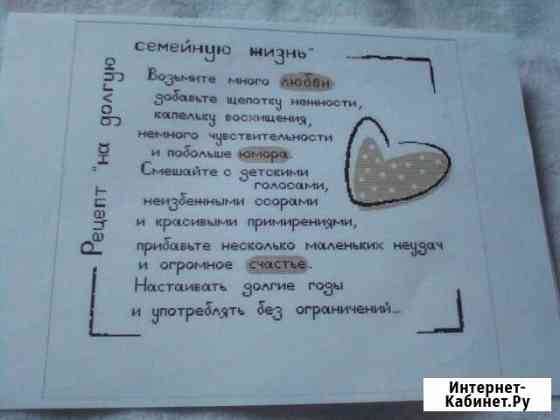 Рецепт "на долгую
семейную жизнь"
Возьмите много любви
добавьте щепотку нежности,
капельку восхищения,
немного чувствительности
и побольше юмора.
Смешайте с детскими
голосами,
неизбежными ссорами
и красивыми примирениями,
прибавьте несколько маленьких неудач
и огромное счастье.
Настаивать долгие годы
и употреблять без ограничений...
Интернет-
Кабинет.Ру